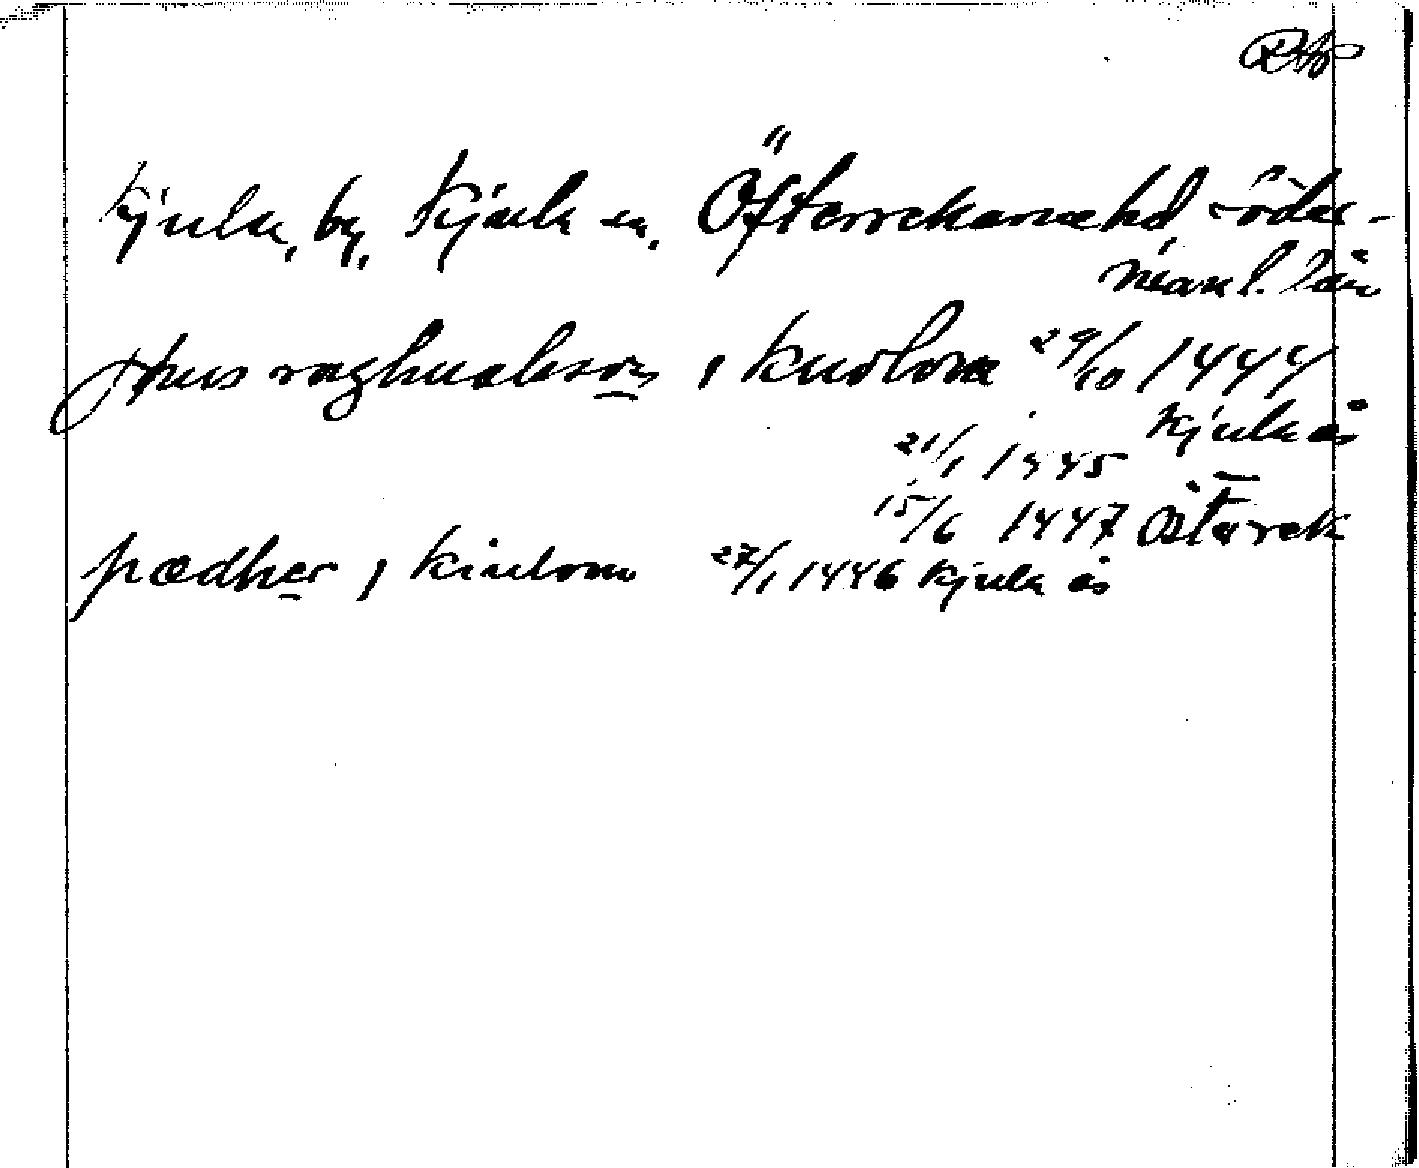 Kjula, by, Kjula sn, Österrekarne hd, Söder-
manl. län
jøns raghualdsson j kiulom 29/10 1444
Kjula ås
21/1 1445
15/6 1447 Österrek
pædher j kiulom 27/1 1446 Kjula ås